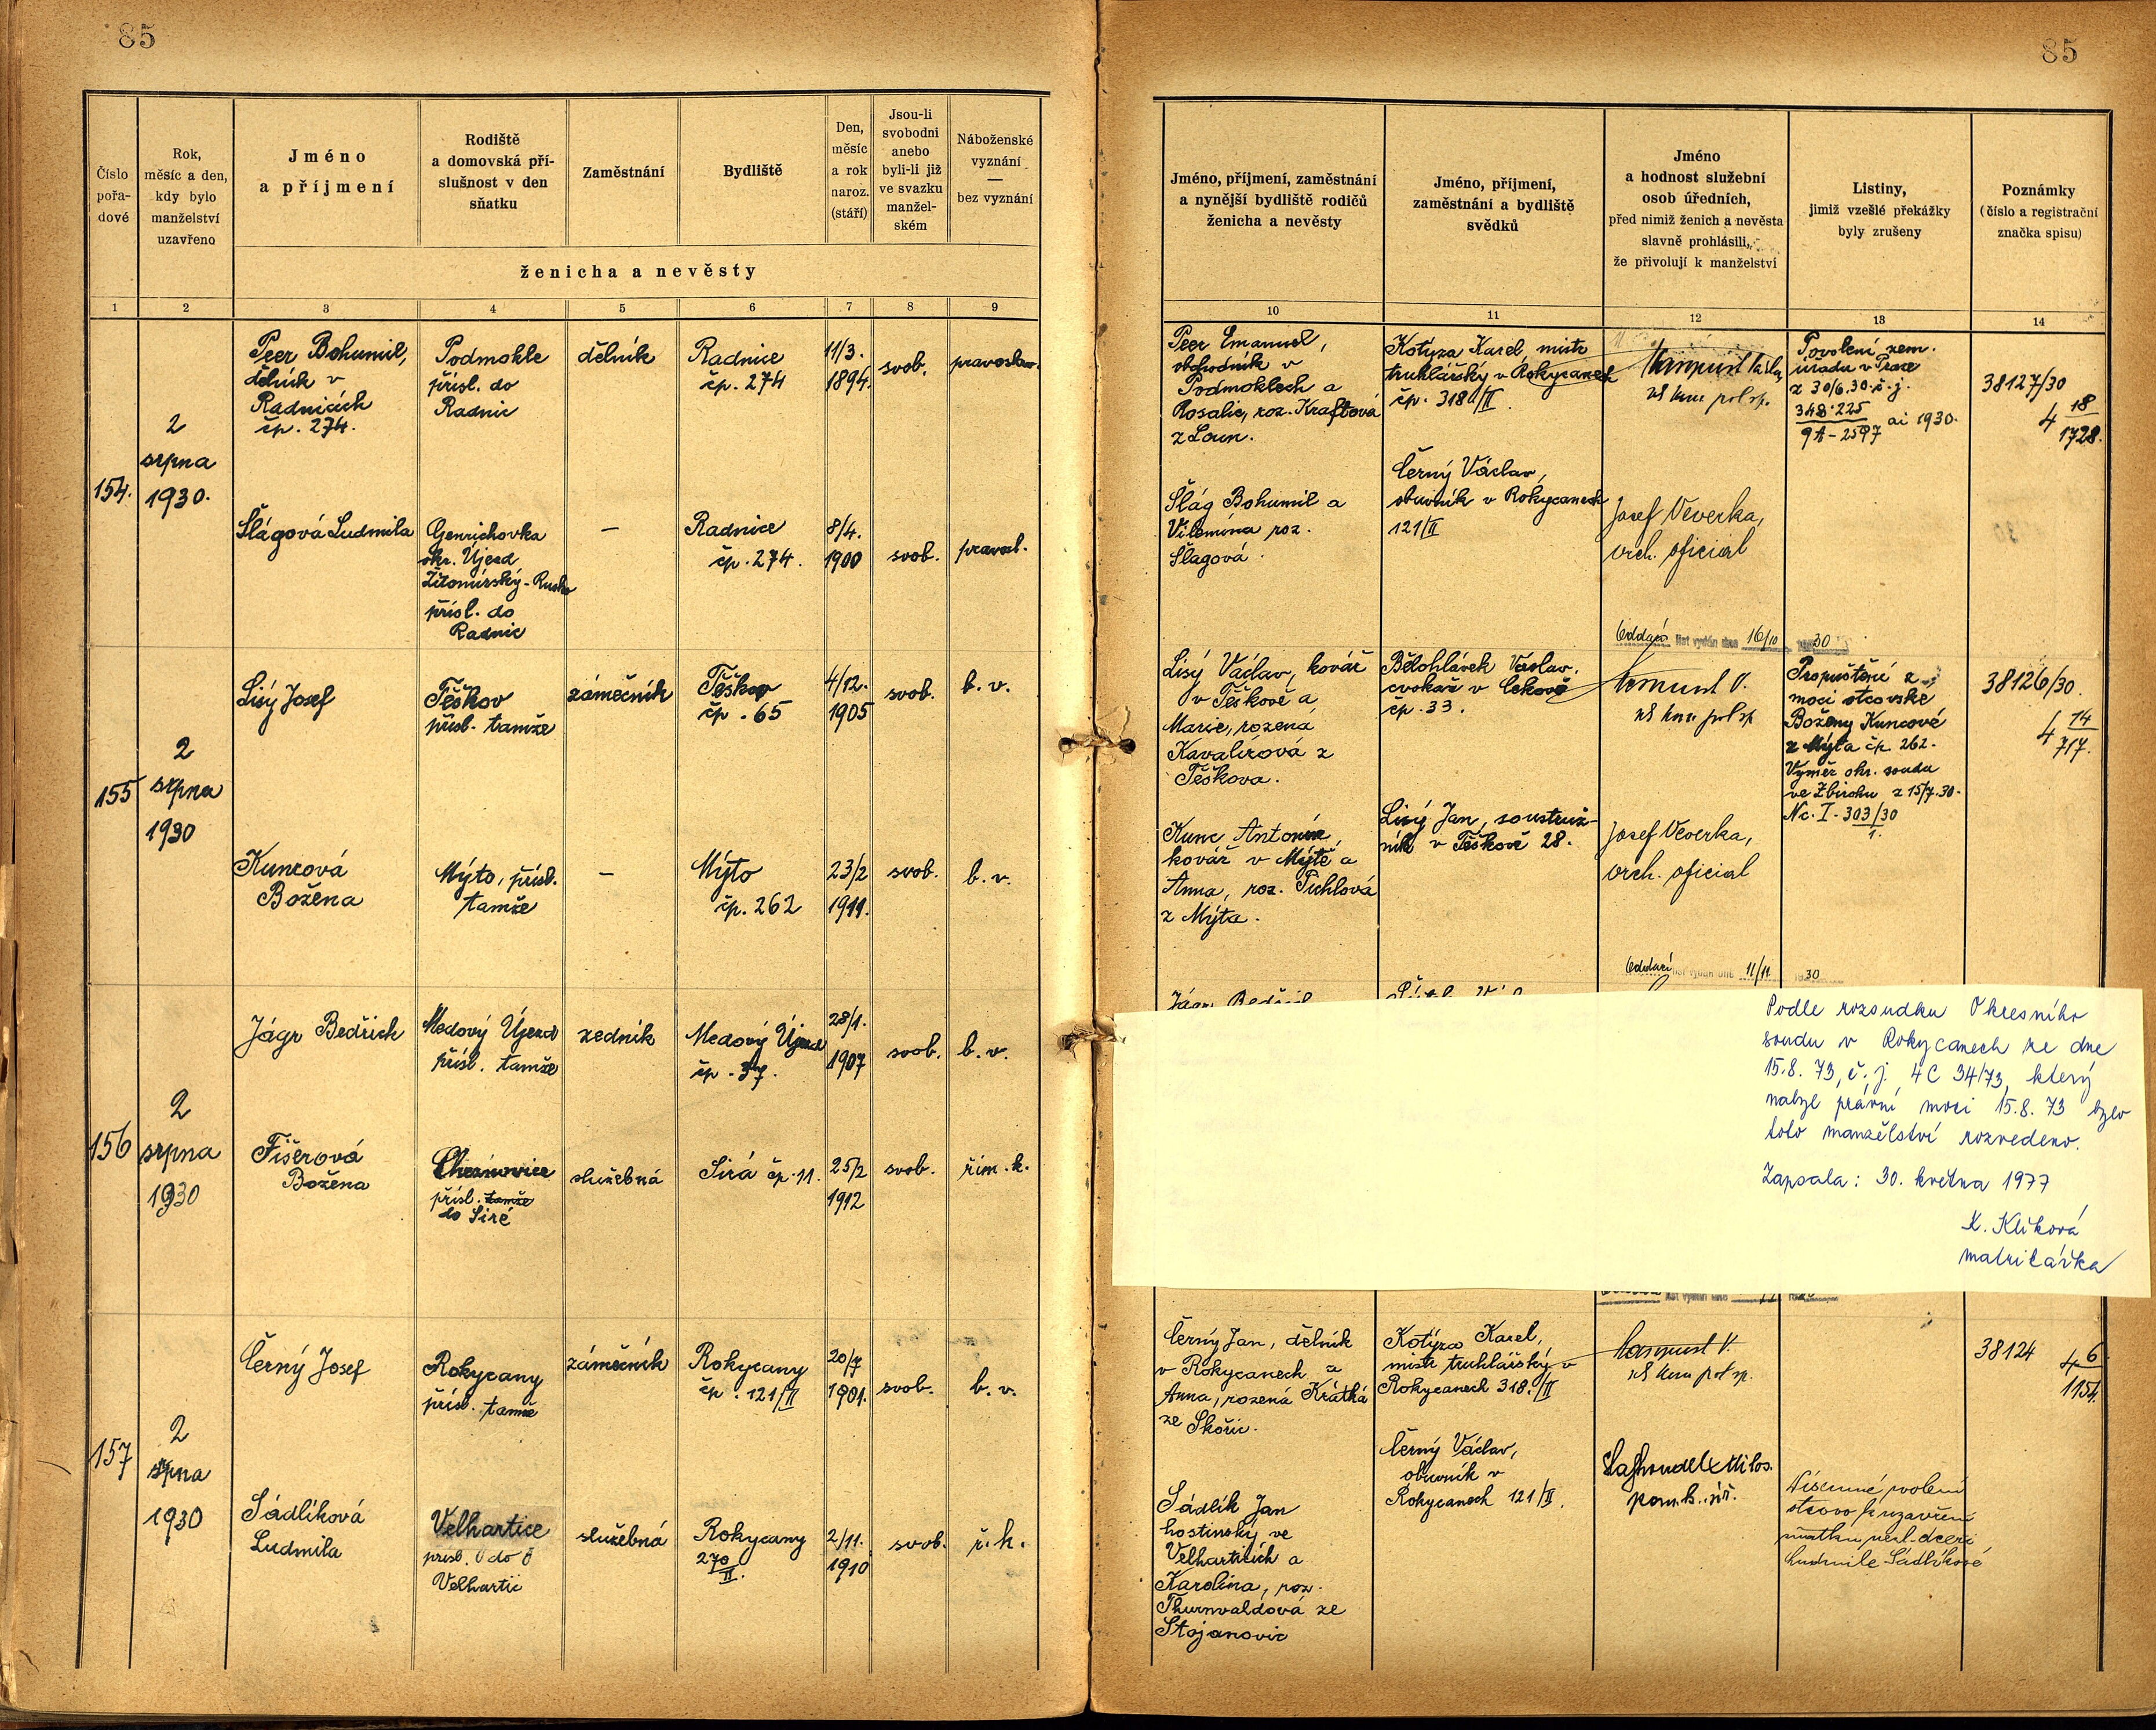 85
85
Číslo
pořa-
dové
Rok,
měsíc a den,
kdy bylo
manželství
uzavřeno
Jméno
a příjmení
Rodiště
a domovská pří-
slušnost v den
sňatku
Zaměstnání
Bydliště
Den,
měsíc
a rok
naroz.
(stáří)
Jsou-li
svobodni
anebo
byli-li již
ve svazku
manžel-
ském
Náboženské
vyznání
—
bez vyznání
ženicha a nevěsty
1 2 3 4 5 6 7 8 9
Jméno, příjmení, zaměstnání
a nynější bydliště rodičů
ženicha a nevěsty
Jméno, příjmení,
zaměstnání a bydliště
svědků
Jméno
a hodnost služební
osob úředních,
před nimiž ženich a nevěsta
slavně prohlásili,
že přivolují k manželství
Listiny,
jimiž vzešlé překážky
byly zrušeny
Poznámky
(číslo a registrační
značka spisu)
10 11 12 13 14
154.
2
srpna
1930.
Peer Bohumil,
dělník v
Radnicích
čp. 274.
Podmokle
přísl. do
Radnic
dělník
Radnice
čp. 274
11/3.
1894.
svob.
pravoslav.
Šlágová Ludmila
Genrichovka
okr. Újezd
Žitomírský - Rusko
přísl. do
Radnic
—
Radnice
čp. 274.
8/4.
1900
svob.
pravosl.
Peer Emanuel,
obchodník v
Podmoklech a
Rosalie, roz. Kraftová
z Loun.
Šlág Bohumil a
Vilemína roz.
Šlagová.
Kotyza Karel, mistr
truhlářský v Rokycanech
čp. 318/II.
Černý Václav,
obuvník v Rokycanech
121/II
Josef Veverka,
vrch. oficial
Povolení zem.
úřadu v Praze
z 30/6.30.č.j.
348.225
9A-2597 ai 1930.
38127/30
4 18
1728.
Oddací list vydán dne 16/10 1930
155
2
srpna
1930
Lisý Josef
Těškov
přísl. tamže
zámečník
Těškov
čp. 65
4/12.
1905
svob.
b. v.
Kuncová
Božena
Mýto, přísl.
tamže
—
Mýto
čp. 262
23/2
1911.
svob.
b. v.
Lisý Václav, kovář
v Těškově a
Marie, rozená
Kavalírová z
Těškova.
Kunc Antonín
kovář v Mýtě a
Anna, roz. Pichlová
z Mýta.
Bělohlávek Václav,
cvokař v Cekově
čp. 33.
Lisý Jan, soustruž-
ník v Těškově 28.
Josef Veverka,
vrch. oficial
Propuštění z
moci otcovské
Boženy Kuncové
z Mýta čp. 262.
Výměr okr. soudu
ve Zbirohu z 15/7.30.
Nc. I. 303/30
1.
38126/30.
4 14
717.
Oddací list vydán dne 11/11 1930
156
2
srpna
1930
Jágr Bedřich
Medový Újezd
přísl. tamže
zedník
Medový Újezd
čp. 37.
28/1.
1907
svob.
b. v.
Fišerová
Božena
Cheznovice
přísl. tamže
do Siré
služebná
Sirá čp. 11.
25/2
1912
svob.
řím. k.
Jágr Bedřich
Podle rozsudku Okresního
soudu v Rokycanech ze dne
15.8. 73, č. j. 4 C 34/73, který
nabyl právní moci 15.8. 73 bylo
toto manželství rozvedeno.
Zapsala: 30. května 1977
K. Klíková
matrikářka
157
2
srpna
1930
Černý Josef
Rokycany
přísl. tamže
zámečník
Rokycany
čp. 121/II
20/7
1901.
svob.
b. v.
Sádlíková
Ludmila
Velhartice
přísl. do
Velhartic
služebná
Rokycany
270
II.
2/11.
1910
svob.
ř. k.
Černý Jan, dělník
v Rokycanech a
Anna, rozená Krátká
ze Skořic.
Sádlík Jan
hostinský ve
Velharticích a
Karolina, roz.
Thurnvaldová ze
Stojanovic
Kotyza Karel,
mistr truhlářský v
Rokycanech 318./II
Černý Václav,
obuvník v
Rokycanech 121/II.
Písemné svolení
otcovo k uzavření
sňatku nezl. dceři
Ludmile Sádlíkové
38124
4 6
1154.